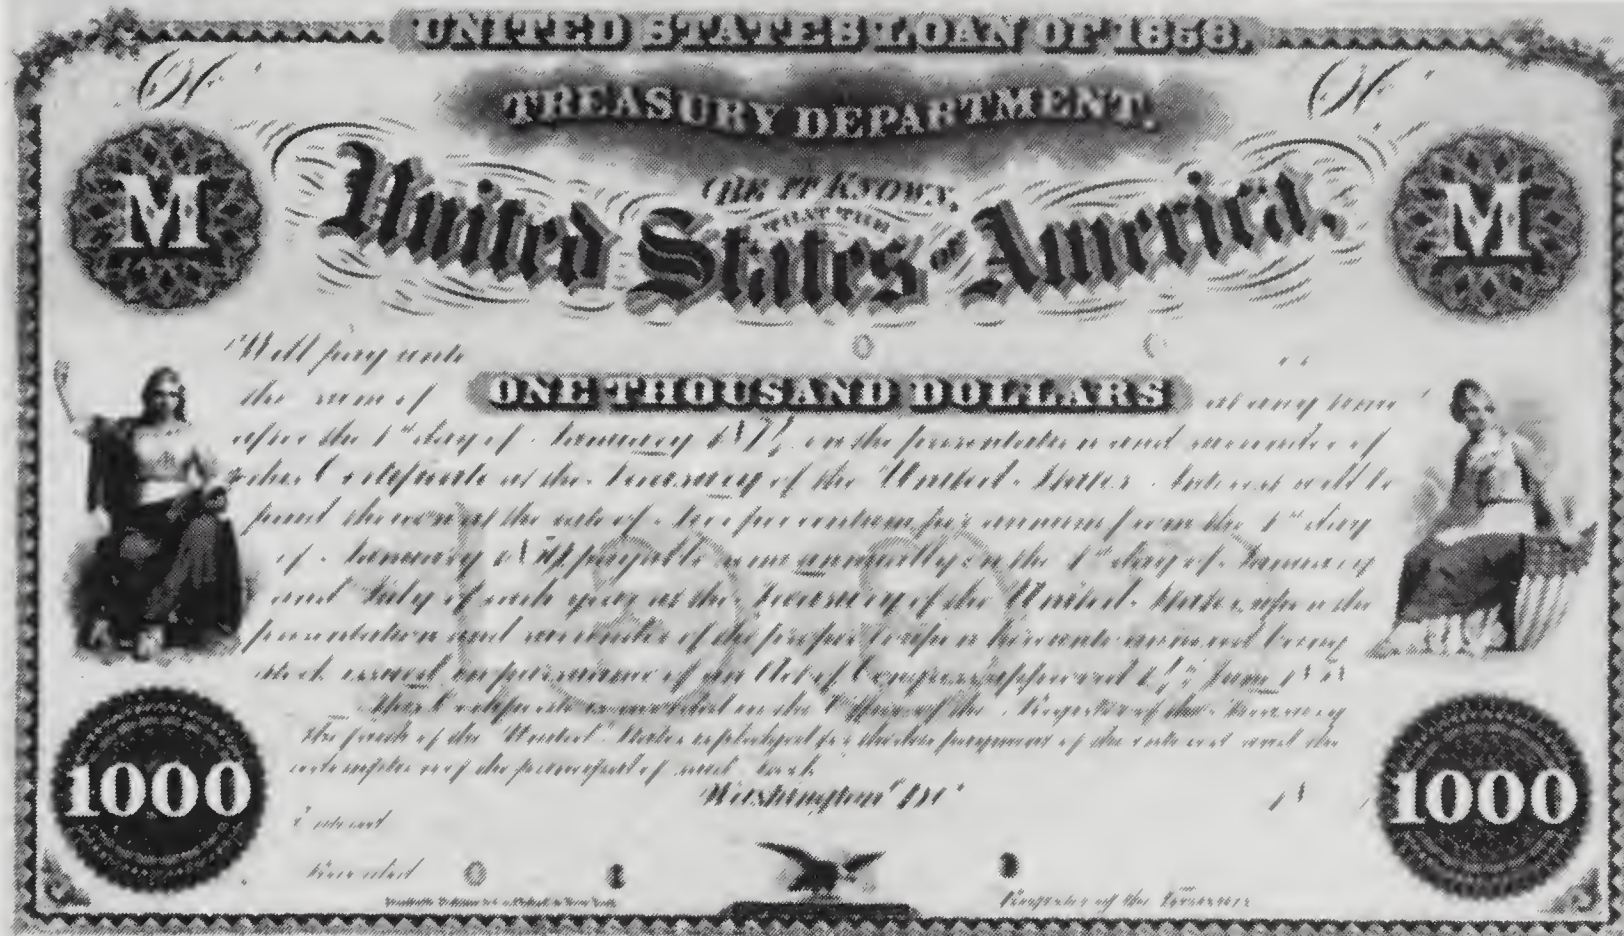 UNITED STATES LOAN OF 1858.
TREASURY DEPARTMENT.
M
M
BE IT KNOWN,
THAT THE
United States OF America.
Will pay unto
the sum of ONE THOUSAND DOLLARS at any time
after the 1st day of January 187 on the presentation and surrender of
this Certificate at the Treasury of the United States. Interest will be
paid thereon at the rate of five per centum per annum from the 1st day
of January payable semi annually on the 1st day of January
and July of each year at the Treasury of the United States, upon the
presentation and surrender of the proper Coupon hereunto annexed being
stock issued in pursuance of an Act of Congress approved June
This Certificate is recorded in the Office of the Register of the Treasury
the faith of the United States is pledged for the due payment of the interest and the
redemption of the principal of said stock
Washington
1000
1000
Entered
Recorded
Register of the Treasury